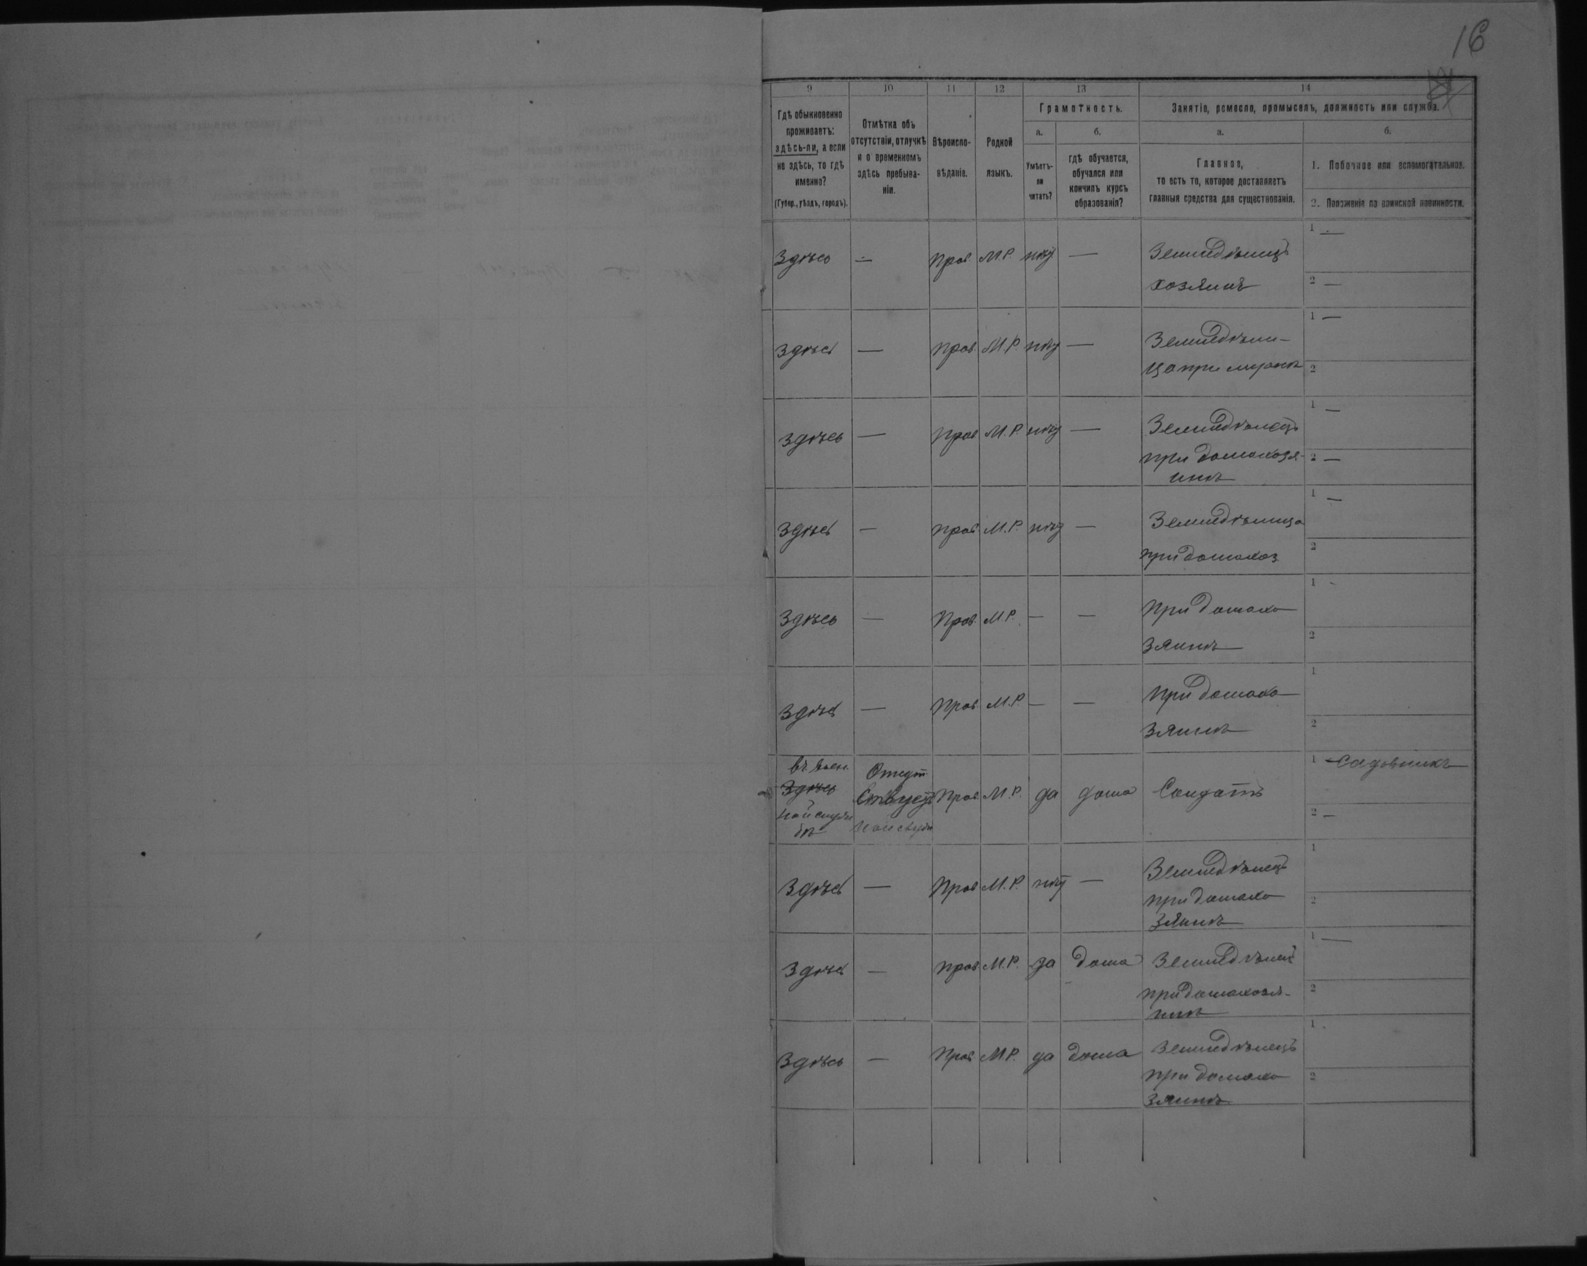 16
9 10 11 12 13 14
Гдѣ обыкновенно
проживаетъ:
здѣсь-ли, а если
не здѣсь, то гдѣ
именно?
(Губер., уѣздъ, городъ).
Отмѣтка объ
отсутствіи, отлучкѣ
и о временномъ
здѣсь пребыва-
ніи.
Вѣроиспо-
вѣданіе.
Родной
языкъ.
Грамотность.
а.
Умѣетъ-
ли
читать?
б.
гдѣ обучается,
обучался или
кончилъ курсъ
образованія?
Занятіе, ремесло, промыселъ, должность или служба.
а.
Главное,
то есть то, которое доставляетъ
главныя средства для существованія.
б.
1. Побочное или вспомогательное.
2. Положеніе по воинской повинности.
Здѣсь — Прав М.Р. нѣт — Земледѣлецъ 1 —
хозяинъ 2 —
Здѣсь — Прав М.Р. нѣт — Земледѣли- 1 —
ца при 2
Здѣсь — Прав М.Р. нѣт — Земледѣлецъ 1 —
при домохозя- 2 —
инѣ
Здѣсь — Прав М.Р. нѣт — Земледѣлица 1 —
при домохоз 2
Здѣсь — Прав М.Р. — — При домохо 1 -
зяинѣ 2
Здѣсь — Прав М.Р. — — При домохо 1
зяинѣ 2
въ воен.
Здѣсь
ной служ
бѣ
Отсут
ствуетъ
Прав М.Р. да дома Солдатъ 1 — садовникъ
2 —
Здѣсь — Прав М.Р. нѣт — Земледѣлецъ 1
при домохо 2
зяинѣ
Здѣсь — Прав М.Р. да дома Земледѣлецъ 1 —
при домохозя- 2
инѣ
Здѣсь — Прав М.Р. да дома Земледѣлецъ 1
при домохо 2
зяинѣ